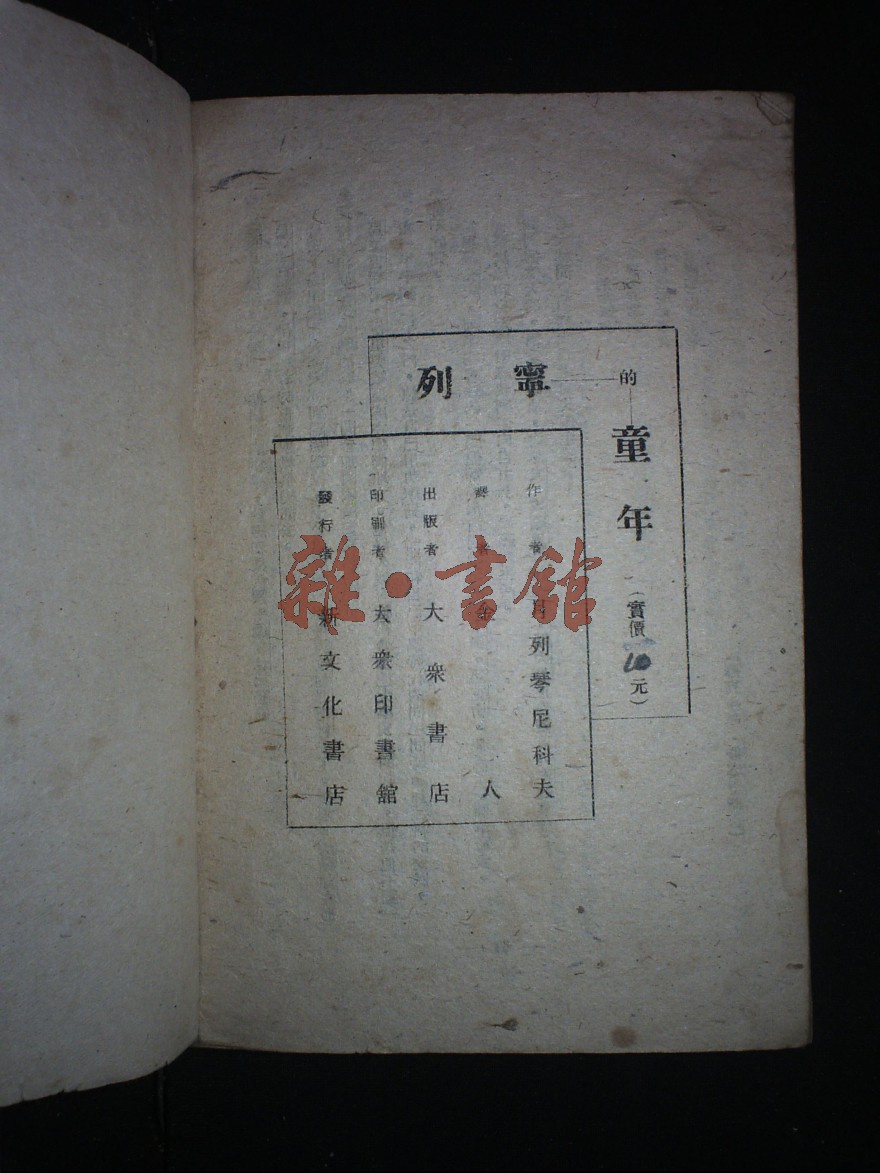 列寧的童年(實價10元)
作者 列琴尼科夫
譯者 金人
出版者 大衆書店
印刷者 大衆印書館
發行者 新文化書店
雜·書館